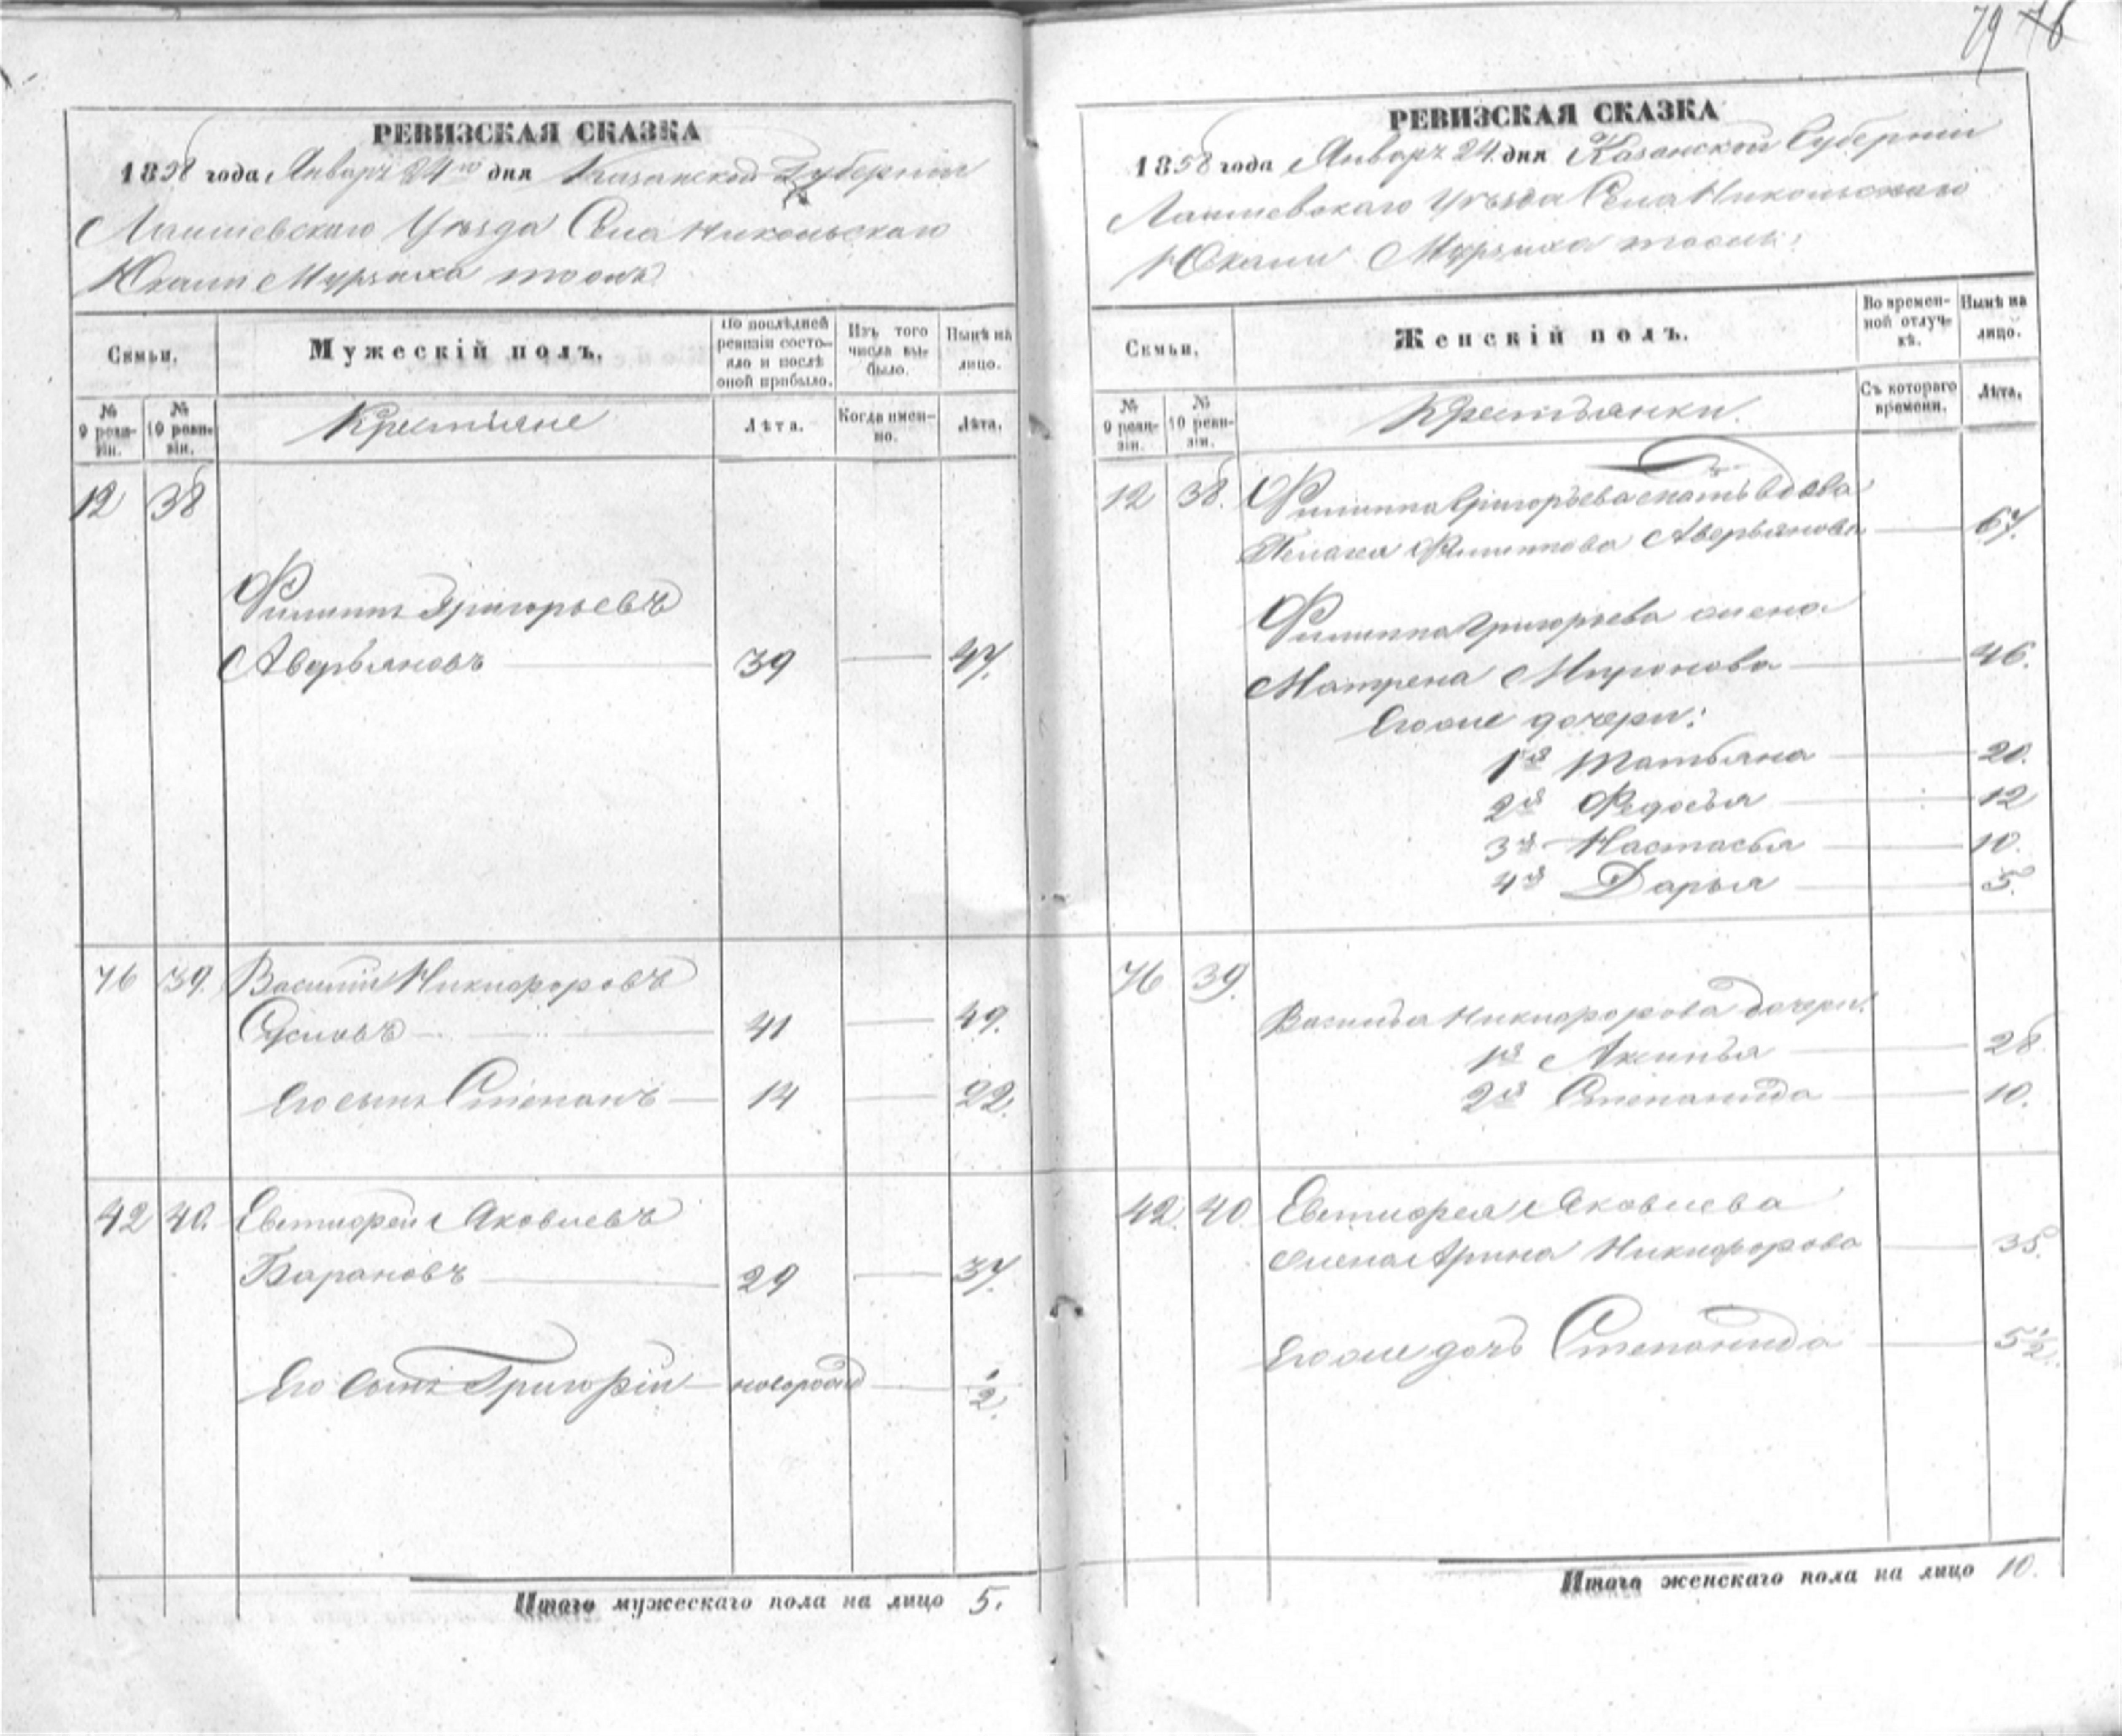 79 76
РЕВИЗСКАЯ СКАЗКА
1858 года Январ 24го дня Казанской Губернии
Лаишевскаго Уѣзда Села Никольскаго
Мурзиха тожъ
Семьи.
Мужескій полъ.
По послѣдней ревизіи состояло и послѣ оной прибыло.
Изъ того числа выбыло.
Нынѣ на лицо.
№ 9 ревизіи.
№ 10 ревизіи.
Крестьяне
Лѣта.
Когда именно.
Лѣта.
12 38
Филиппъ Григорьевъ
Аверьяновъ 39 47.
76 39. Василій Никифоровъ
41 49.
Его сынъ Степанъ 14 22.
42 40. Евтифей Яковлевъ
Барановъ 29 37.
Его сынъ Григорій новорожд 1/2.
Итого мужескаго пола на лицо 5.
РЕВИЗСКАЯ СКАЗКА
1858 года Январ 24. дня Казанской Губернии
Лаишевскаго Уѣзда Села Никольскаго
Мурзиха тожъ
Семьи.
Женскій полъ.
Во временной отлучкѣ.
Нынѣ на лицо.
№ 9 ревизіи.
№ 10 ревизіи.
Крестьянки.
Съ котораго времени.
Лѣта.
12 38. Филиппа Григорьева мать вдова
Пелагея Филиппова Аверьянова 67.
Филиппа Григорьева жена
Матрена Миронова 46.
Его же дочери:
1я Татьяна 20.
2я Федосья 12
3я Настасья 10.
4я Дарья 5.
76 39.
Василья Никифорова дочери:
1я Аксинья 28.
2я Степанида 10.
42. 40 Евтифея Яковлева
жена Арина Никифорова 35.
Его же дочь Степанида 5 1/2.
Итого женскаго пола на лицо 10.